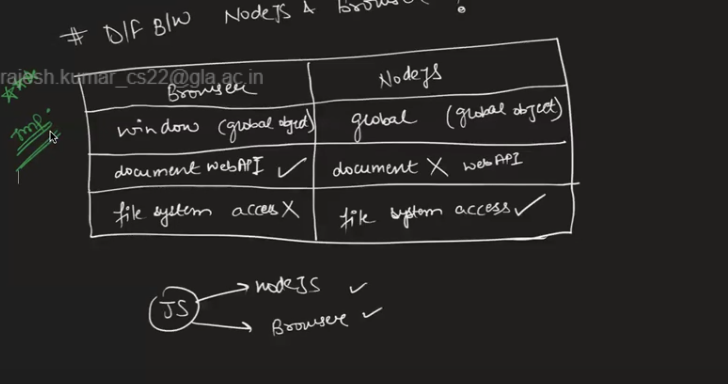 # D/F B/W NodeJS & Browser ?
rajesh.kumar_cs22@gla.ac.in
Browser NodeJS
Imp.
window (global object) global (global object)
document webAPI ✓ document X webAPI
file system acces X file system access ✓
JS
nodeJS ✓
Browser ✓